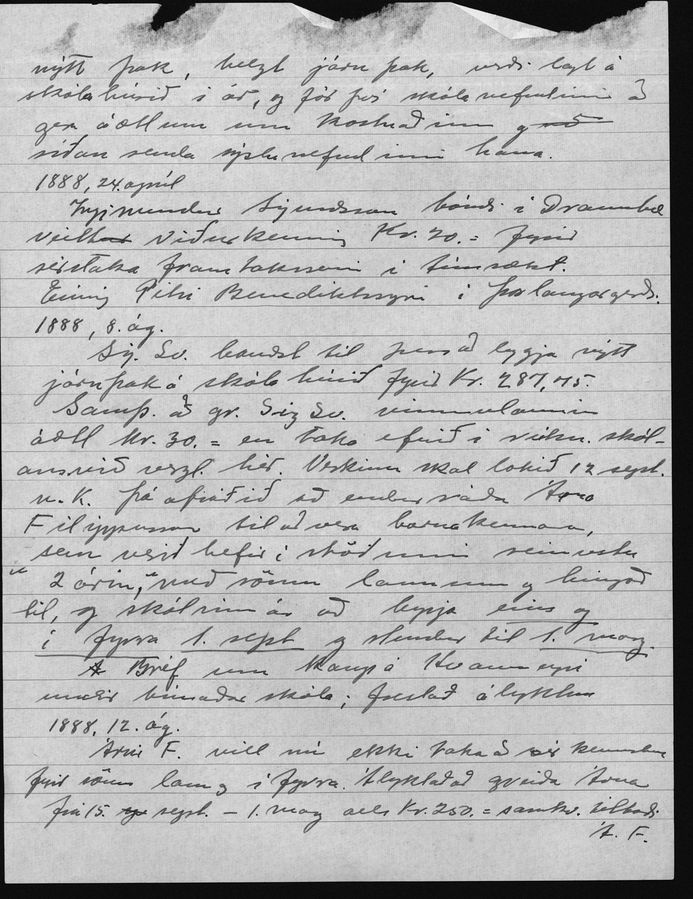 nýtt þak, helzt járnþak, verði lagt á
skólahúsið í ár, og fól því skólanefndinni að
gera áætlun um kostnaðinn og
síðan senda sýslunefndinni hana.
1888, 24. apríl
Sigmundsson bóndi í Draumbæ
veitt viðurkenning Kr. 20.= fyrir
sérstaka framtakssemi í túnrækt.
Einnig Pétri Benediktssyni í Þorlaugargerði.
1888, 8. ág.
Sig. Sv. bauðst til þess að leggja nýtt
járnþak á skólahúsið fyrir Kr. 287,75.
Samþ. að gr. Sig Sv. vinnulaunin
áætl Kr. 30.= en taka efnið í reikn. skól-
ans við verzl. hér. Verkinu skal lokið 12 sept.
n.k. Þá afráðið að endurráða Árna
Filippusson til að vera barnakennara,
sem verið hefir í stöðunni seinustu
" 2 árin," með sömu launum og hingað
til, og skólinn á að byrja eins og
í fyrra 1. sept og stendur til 1. marz.
Bréf um kaup á Hvanneyri
undir búnaðarskóla; frestað ályktun
1888, 12. ág.
Árni F. vill nú ekki taka að sér kennslu
fyrir sömu laun og í fyrra. Ályktað að greiða Árna
frá 15. sept. – 1. marz alls Kr. 250.= samkv. tilboði
Á. F.